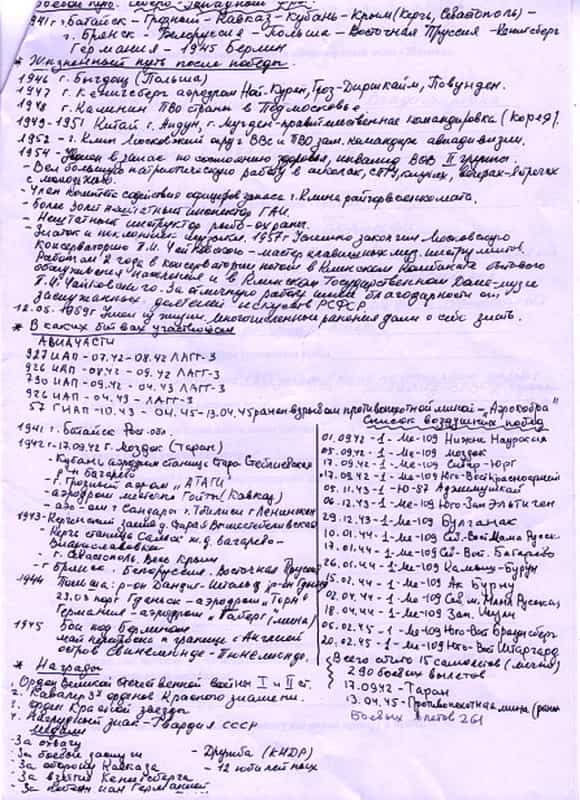 1941 г. Батайск - Грозный - Кавказ - Кубань - Крым (Керчь, Севастополь) -
г. Брянск - Белоруссия - Польша - Восточная Пруссия - Кенигсберг
Германия - 1945 Берлин
* Жизненный путь после победы.
1946 г. Быдгощ (Польша)
1947 г. Кенигсберг аэродром Повунден.
1948 г. Калинин ПВО страны в Подмосковье.
1949-1951 Китай г. Андун, г. Мугден - правительственная командировка (Корея).
1952 - г. Клин Московский округ ВВС и ПВО зам. командира авиадивизии.
1954 - Уволен в запас по состоянию здоровья, инвалид ВОВ II группы.
- Вел большую патриотическую работу в школах, СПТУ,
с молодежью.
- Член комитета содействия офицеров запаса г. Клина райгорвоенкомата.
- Более 30 лет нештатный инспектор ГАИ.
- Нештатный инструктор рыбоохраны.
- Знаток и поклонник музыки. 1957 г. Успешно закончил Московскую
Консерваторию П.И. Чайковского - мастер клавишных муз. инструментов.
Работал 2 года в консерватории потом в Клинском Комбинате бытового
обслуживания населения и в Клинском Государственном Доме-музее
П.И. Чайковского. За отличную работу имел благодарности от
заслуженных деятелей искусств РСФСР
12.05.1989 г. Ушел из жизни. Многочисленные ранения дали о себе знать.
* В каких боях участвовал
АВИАЧАСТИ
927 ИАП - 07.42 - 08.42 ЛАГГ-3
926 ИАП - 08.42 - 09.42 ЛАГГ-3
790 ИАП - 09.42 - 04.43 ЛАГГ-3
926 ИАП - 04.43 - ЛАГГ-3
57 ГИАП - 10.43 - 04.45 - 13.04.45 ранен взрывом противопехотной миной - "Аэрокобра"
1941 г. Батайск Рост. обл.
1942 г. - 17.09.42 г. Моздок (Таран)
- Кубань аэродром станица Старо Стеблиевская
р-н Багерово
- г. Грозный аэром "АТАГИ"
- аэродром местечко Гойты (Кавказ)
- г. Сандары г. Тбилиси г. Ленинакан
1943 - Керченский залив д.
- Керчь станица Самойс ж.д. Багерово -
Владиславовка
- г. Севастополь. Весь Крым
- г. Брянск - Белоруссия. Восточная Пруссия
1944 Польша: р-он
23.03 порт Гданьск - аэродром "Торн"
Германия - аэродром (мина)
1945 Бои под Берлином
май переброска на границе с Англией
остров Свинемюнде - Пенемюнде.
* Награды
1. Орден Великой Отечественной войны I и II ст.
2. Кавалер 3х орденов Красного знамени.
3. орден Красной звезды
4. Нагрудный знак - Гвардия СССР
Медали
- За отвагу
- За боевые заслуги
- За оборону Кавказа
- За взятие Кенигсберга
- За победу над Германией
- Дружба (КНДР)
- 12 юбилейных
Список воздушных побед
01.09.42 - 1 - Ме-109 Нижне Наурская
05.09.42 - 1 - Ме-109 Моздок
17.09.42 - 1 - Ме-109
17.09.42 - 1 - Ме-109 Юго-Вост Красногорский
05.11.43 - 1 - Ю-87 Аджимушкай
06.12.43 - 1 - Ме-109 Юго-Зап Эльтиген
29.12.43 - 1 - Ме-109 Булганак
10.01.44 - 1 - Ме-109 Сев-Вост Мама Русск.
17.01.44 - 1 - Ме-109 Сев-Вост. Багерово
26.01.44 - 1 - Ме-109 Камыш-Бурун
15.02.44 - 1 - Ме-109 Ак Бурну
02.04.44 - 1 - Ме-109 Сев м. Мама Русская
18.04.44 - 1 - Ме-109 Зап.
06.02.45 - 1 - Ме-109 Юго-Вост Браунсберг
20.02.45 - 1 - Ме-109 Юго-Вост Штаргард
Всего сбито 15 самолетов (лично)
290 боевых вылетов
17.09.42 - Таран
13.04.45 - Противопехотная мина (ранен
Боевых влетов 261